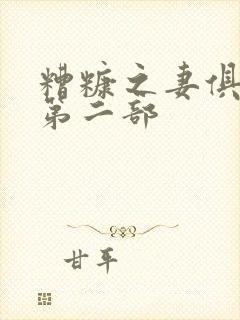 糟糠之妻俱
第二部
甘平